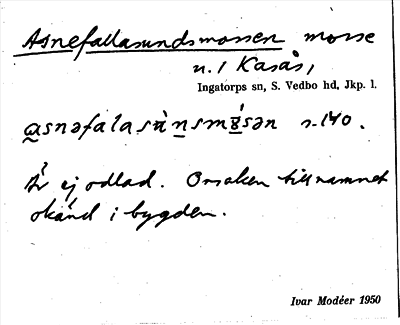 Åsnefallasundsmossen mosse
u. 1 Kasås,
Ingatorps sn, S. Vedbo hd, Jkp. l.
s. 140.
Är ej odlad. Orsaken till namnet
okänd i bygden.
Ivar Modéer 1950